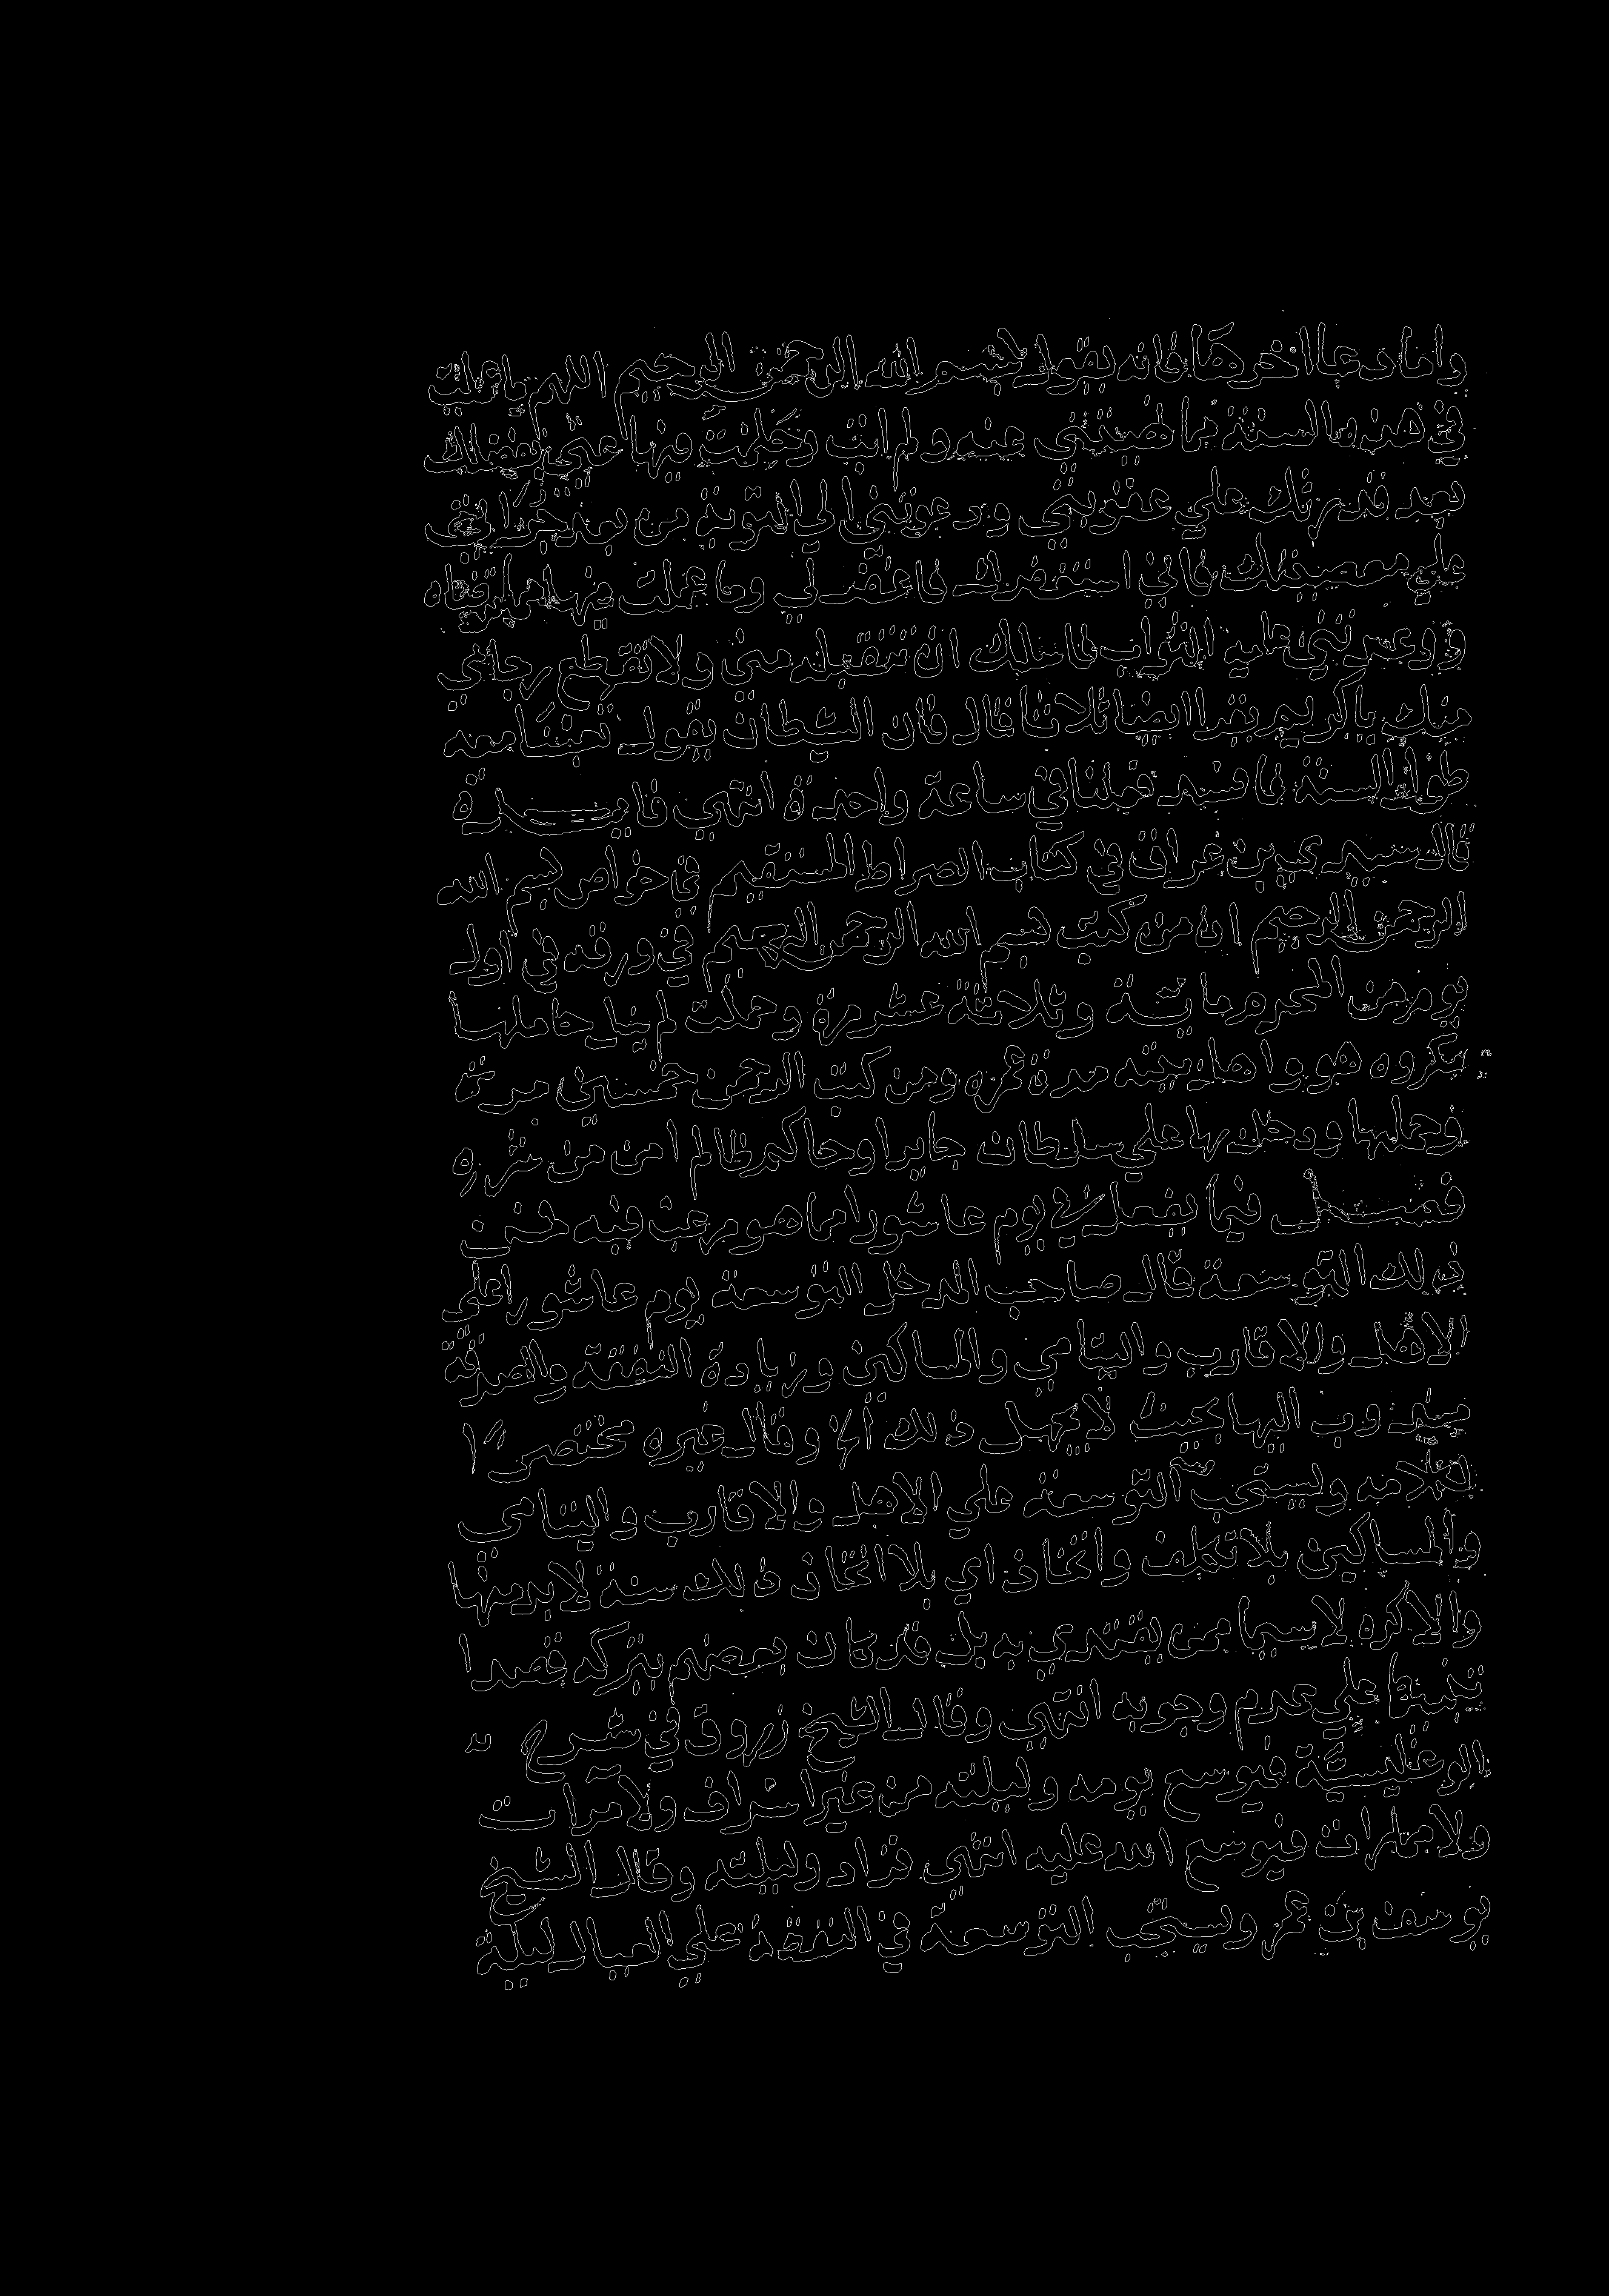 واما دعا اخرها فانه يقول بسم الله الرحمن الرحيم اللهم ما عملت
في هذه السنة مما نهيتني عنه ولم اتب وحلمت فيها عني بفضلك
بعد قدرتك علي عقوبتي ودعوتني الي التوبة من بعد جراتي
علي معصيتك فاني استغفرك فاغفر لي وما عملت فيها مما ترضاه
ووعدتني عليه الثواب فاسلك ان تتقبله مني ولا تقطع رجائي
منك يا كريم يقرا ايضا ثلاثا قال فان الشيطان يقول تعبنا معه
طول السنة فافسد فعلنا في ساعة واحدة انتهي فايدة
قال سيدي بن عراق في كتاب الصراط المستقيم في خواص بسم الله
الرحمن الرحيم ان من كتب بسم الله الرحمن الرحيم في ورقة في اول
يوم من المحرم ماية وثلاثة عشر مرة وحملت لم ينل حاملها
مكروه هو واهل بيته مدة عمره ومن كتب الرحمن خمسين مرة
وحملها ودخل بها علي سلطان جاير او حاكم ظالم امن من شره
فصل فيما يفعل في يوم عاشورا مما هو مرغب فيه فمن
ذلك التوسعة قال صاحب المدخل التوسعة يوم عاشورا علي
الاهل والاقارب واليتامي والمساكين وزيادة النفقة والصدقة
مندوب اليها بحيث لا يجهل ذلك الخ وقال غيره مختصرا
لكلامه ويستحب التوسعة علي الاهل والاقارب واليتامي
والمساكين بلا تكلف واتخاذ اي بلا اتخاذ ذلك سنة لا بد منها
والا كره لا سيما ممن يقتدي به بل قد كان بعضهم يتركه قصدا
تنبيها علي عدم وجوبه انتهي وقال الشيخ زروق في شرح
الوغليسية فيوسع يومه وليلته من غير اسراف ولا مرات
ولا مماراة فيوسع الله عليه انتهي فزاد وليلته وقال الشيخ
يوسف بن عمر ويستحب التوسعة في النفقة علي العيال ليلة